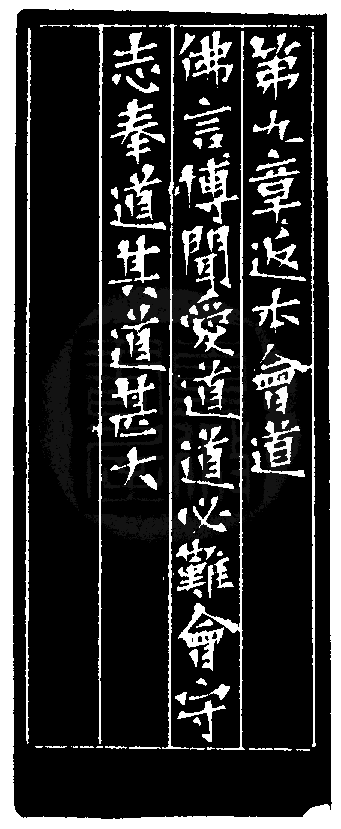 第九章返本會道
佛言博聞愛道道必難會守
志奉道其道甚大